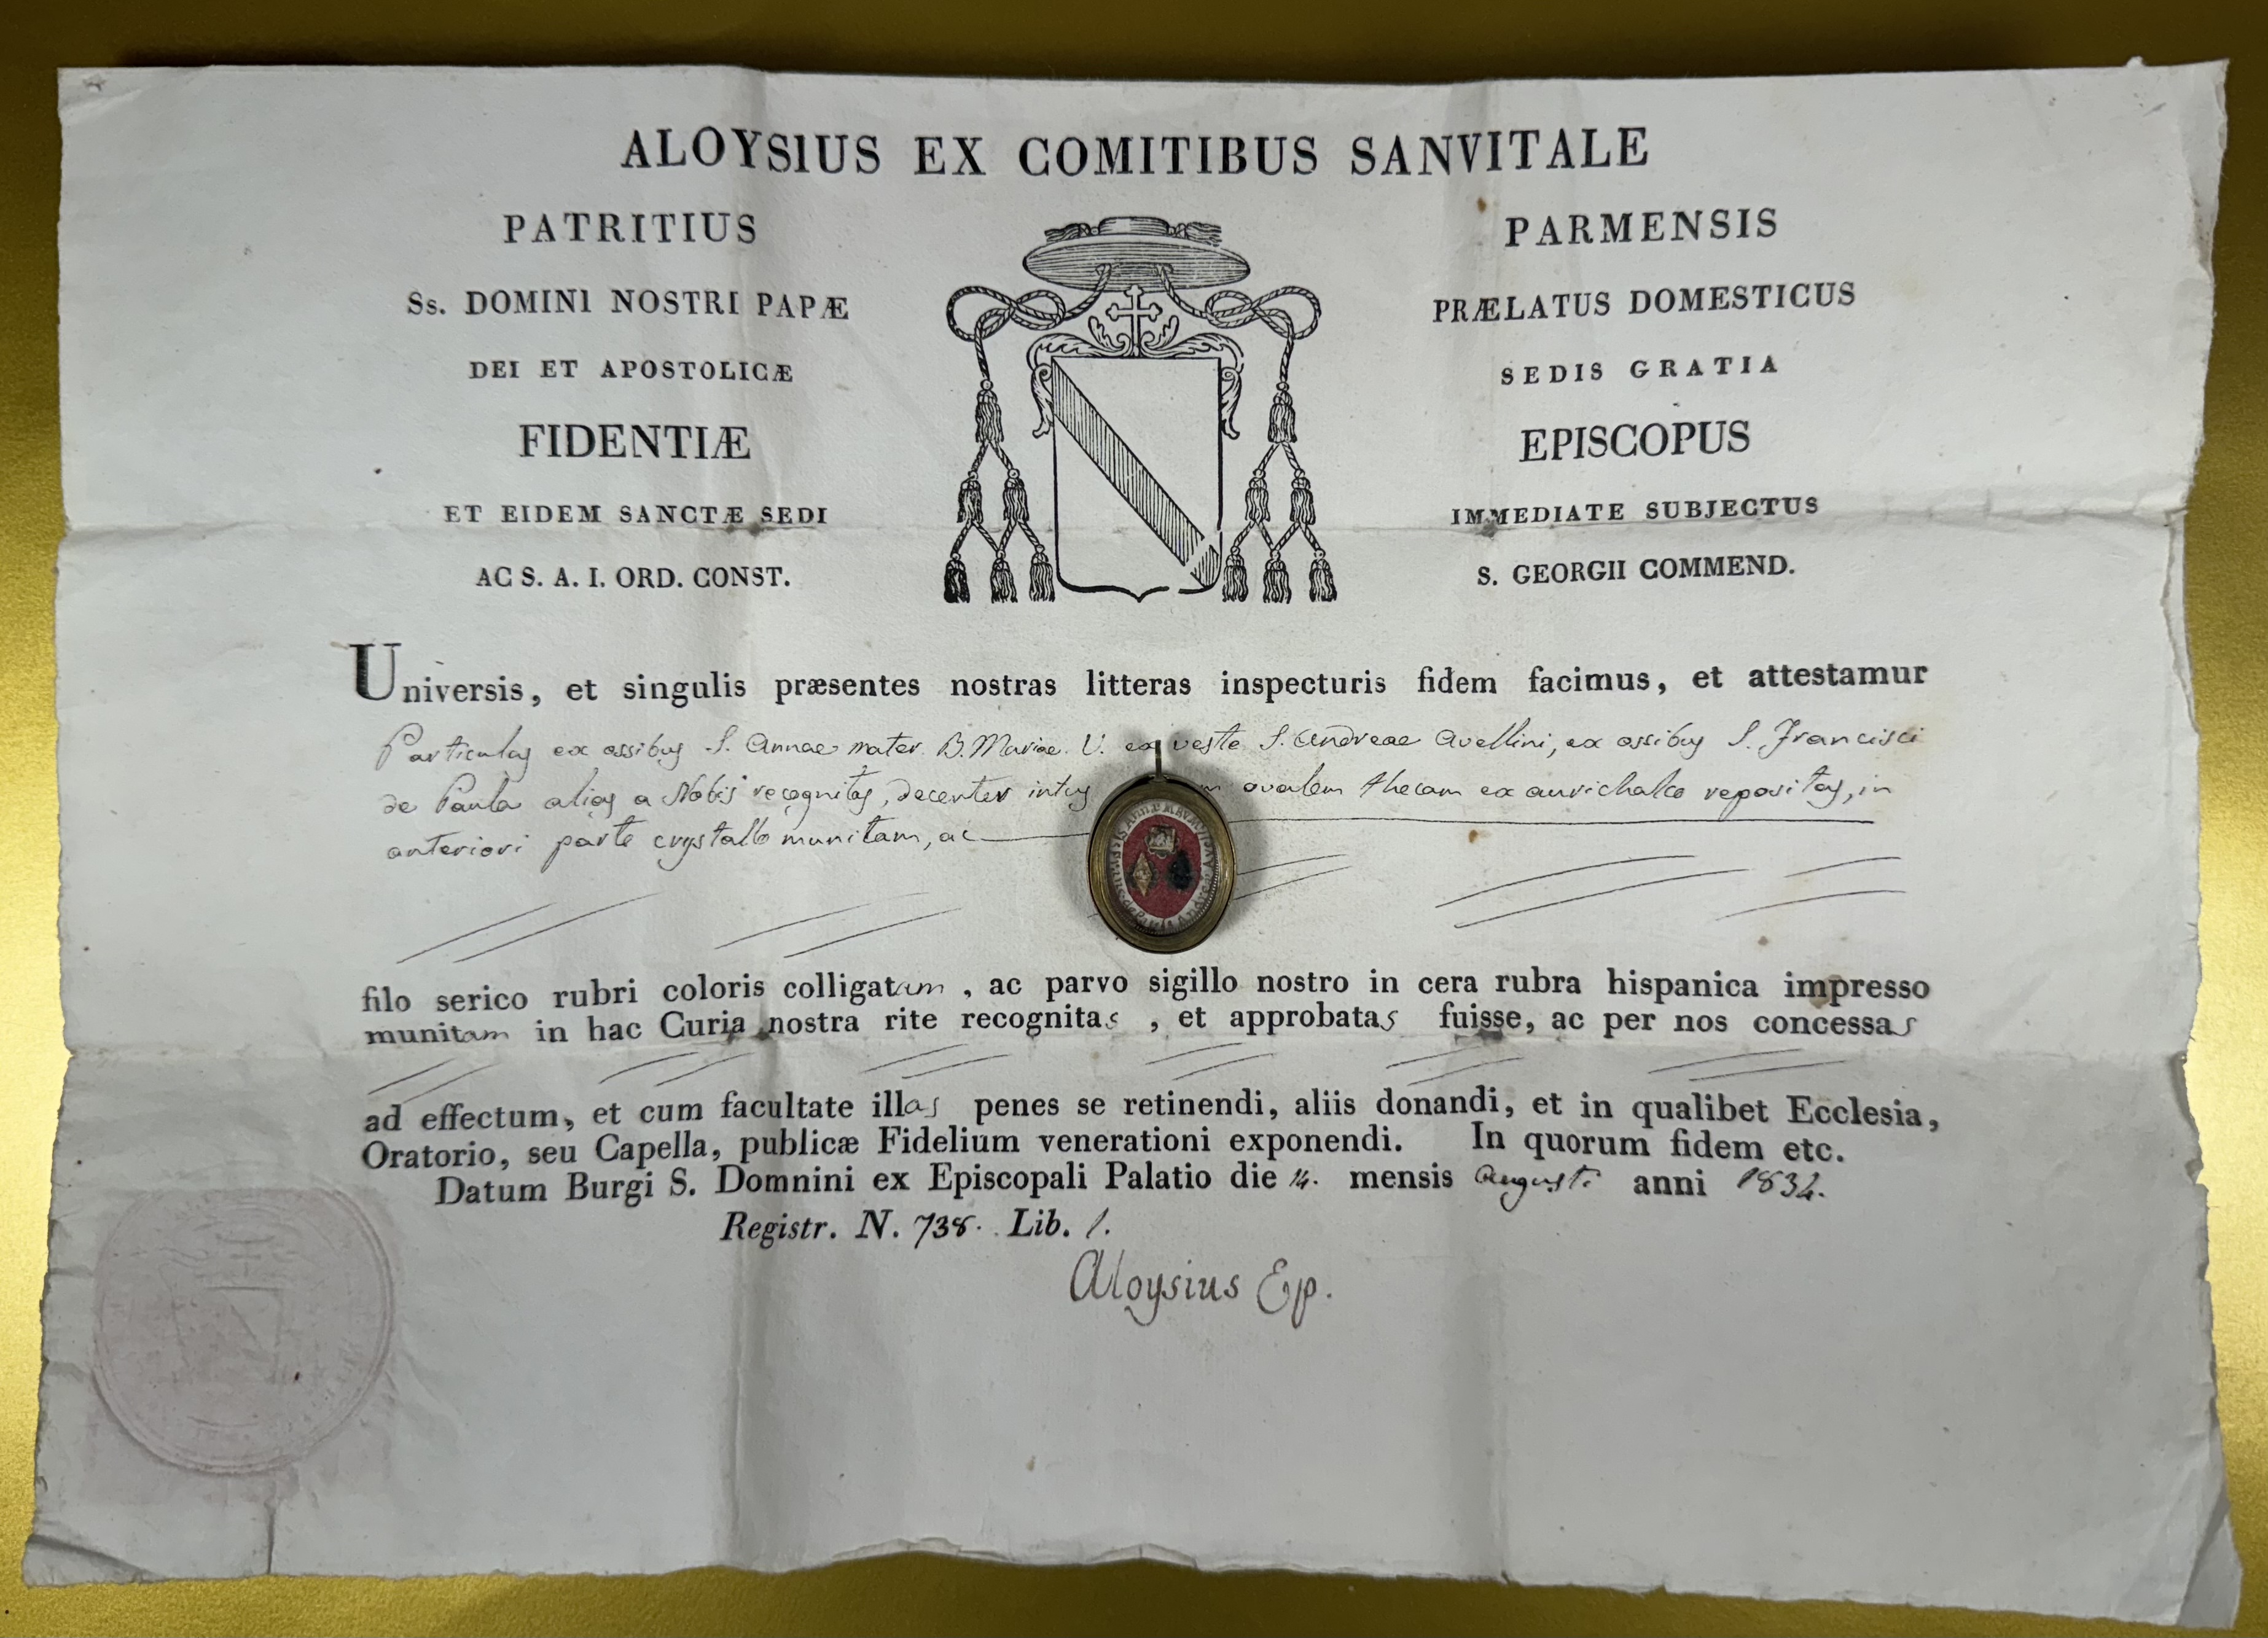 ALOYSIUS EX COMITIBUS SANVITALE
PATRITIUS PARMENSIS
Ss. DOMINI NOSTRI PAPÆ PRÆLATUS DOMESTICUS
DEI ET APOSTOLICÆ SEDIS GRATIA
FIDENTIÆ EPISCOPUS
ET EIDEM SANCTÆ SEDI IMMEDIATE SUBJECTUS
AC S. A. I. ORD. CONST. S. GEORGII COMMEND.
Universis, et singulis præsentes nostras litteras inspecturis fidem facimus, et attestamur
Particulas ex ossibus S. Annae mater. B. Mariae. V. ex veste S. Andreae Avellini, ex ossibus S. Francisci
de Paula alias a Nobis recognitas, decenter intus ovalem thecam ex aurichalco repositas, in
anteriori parte crystallo munitam, ac
filo serico rubri coloris colligatam, ac parvo sigillo nostro in cera rubra hispanica impresso
munitam in hac Curia nostra rite recognitas, et approbatas fuisse, ac per nos concessas
ad effectum, et cum facultate illas penes se retinendi, aliis donandi, et in qualibet Ecclesia,
Oratorio, seu Capella, publicæ Fidelium venerationi exponendi. In quorum fidem etc.
Datum Burgi S. Domnini ex Episcopali Palatio die 14. mensis Augusti anni 1834.
Registr. N. 738. Lib. 1.
Aloysius Ep.